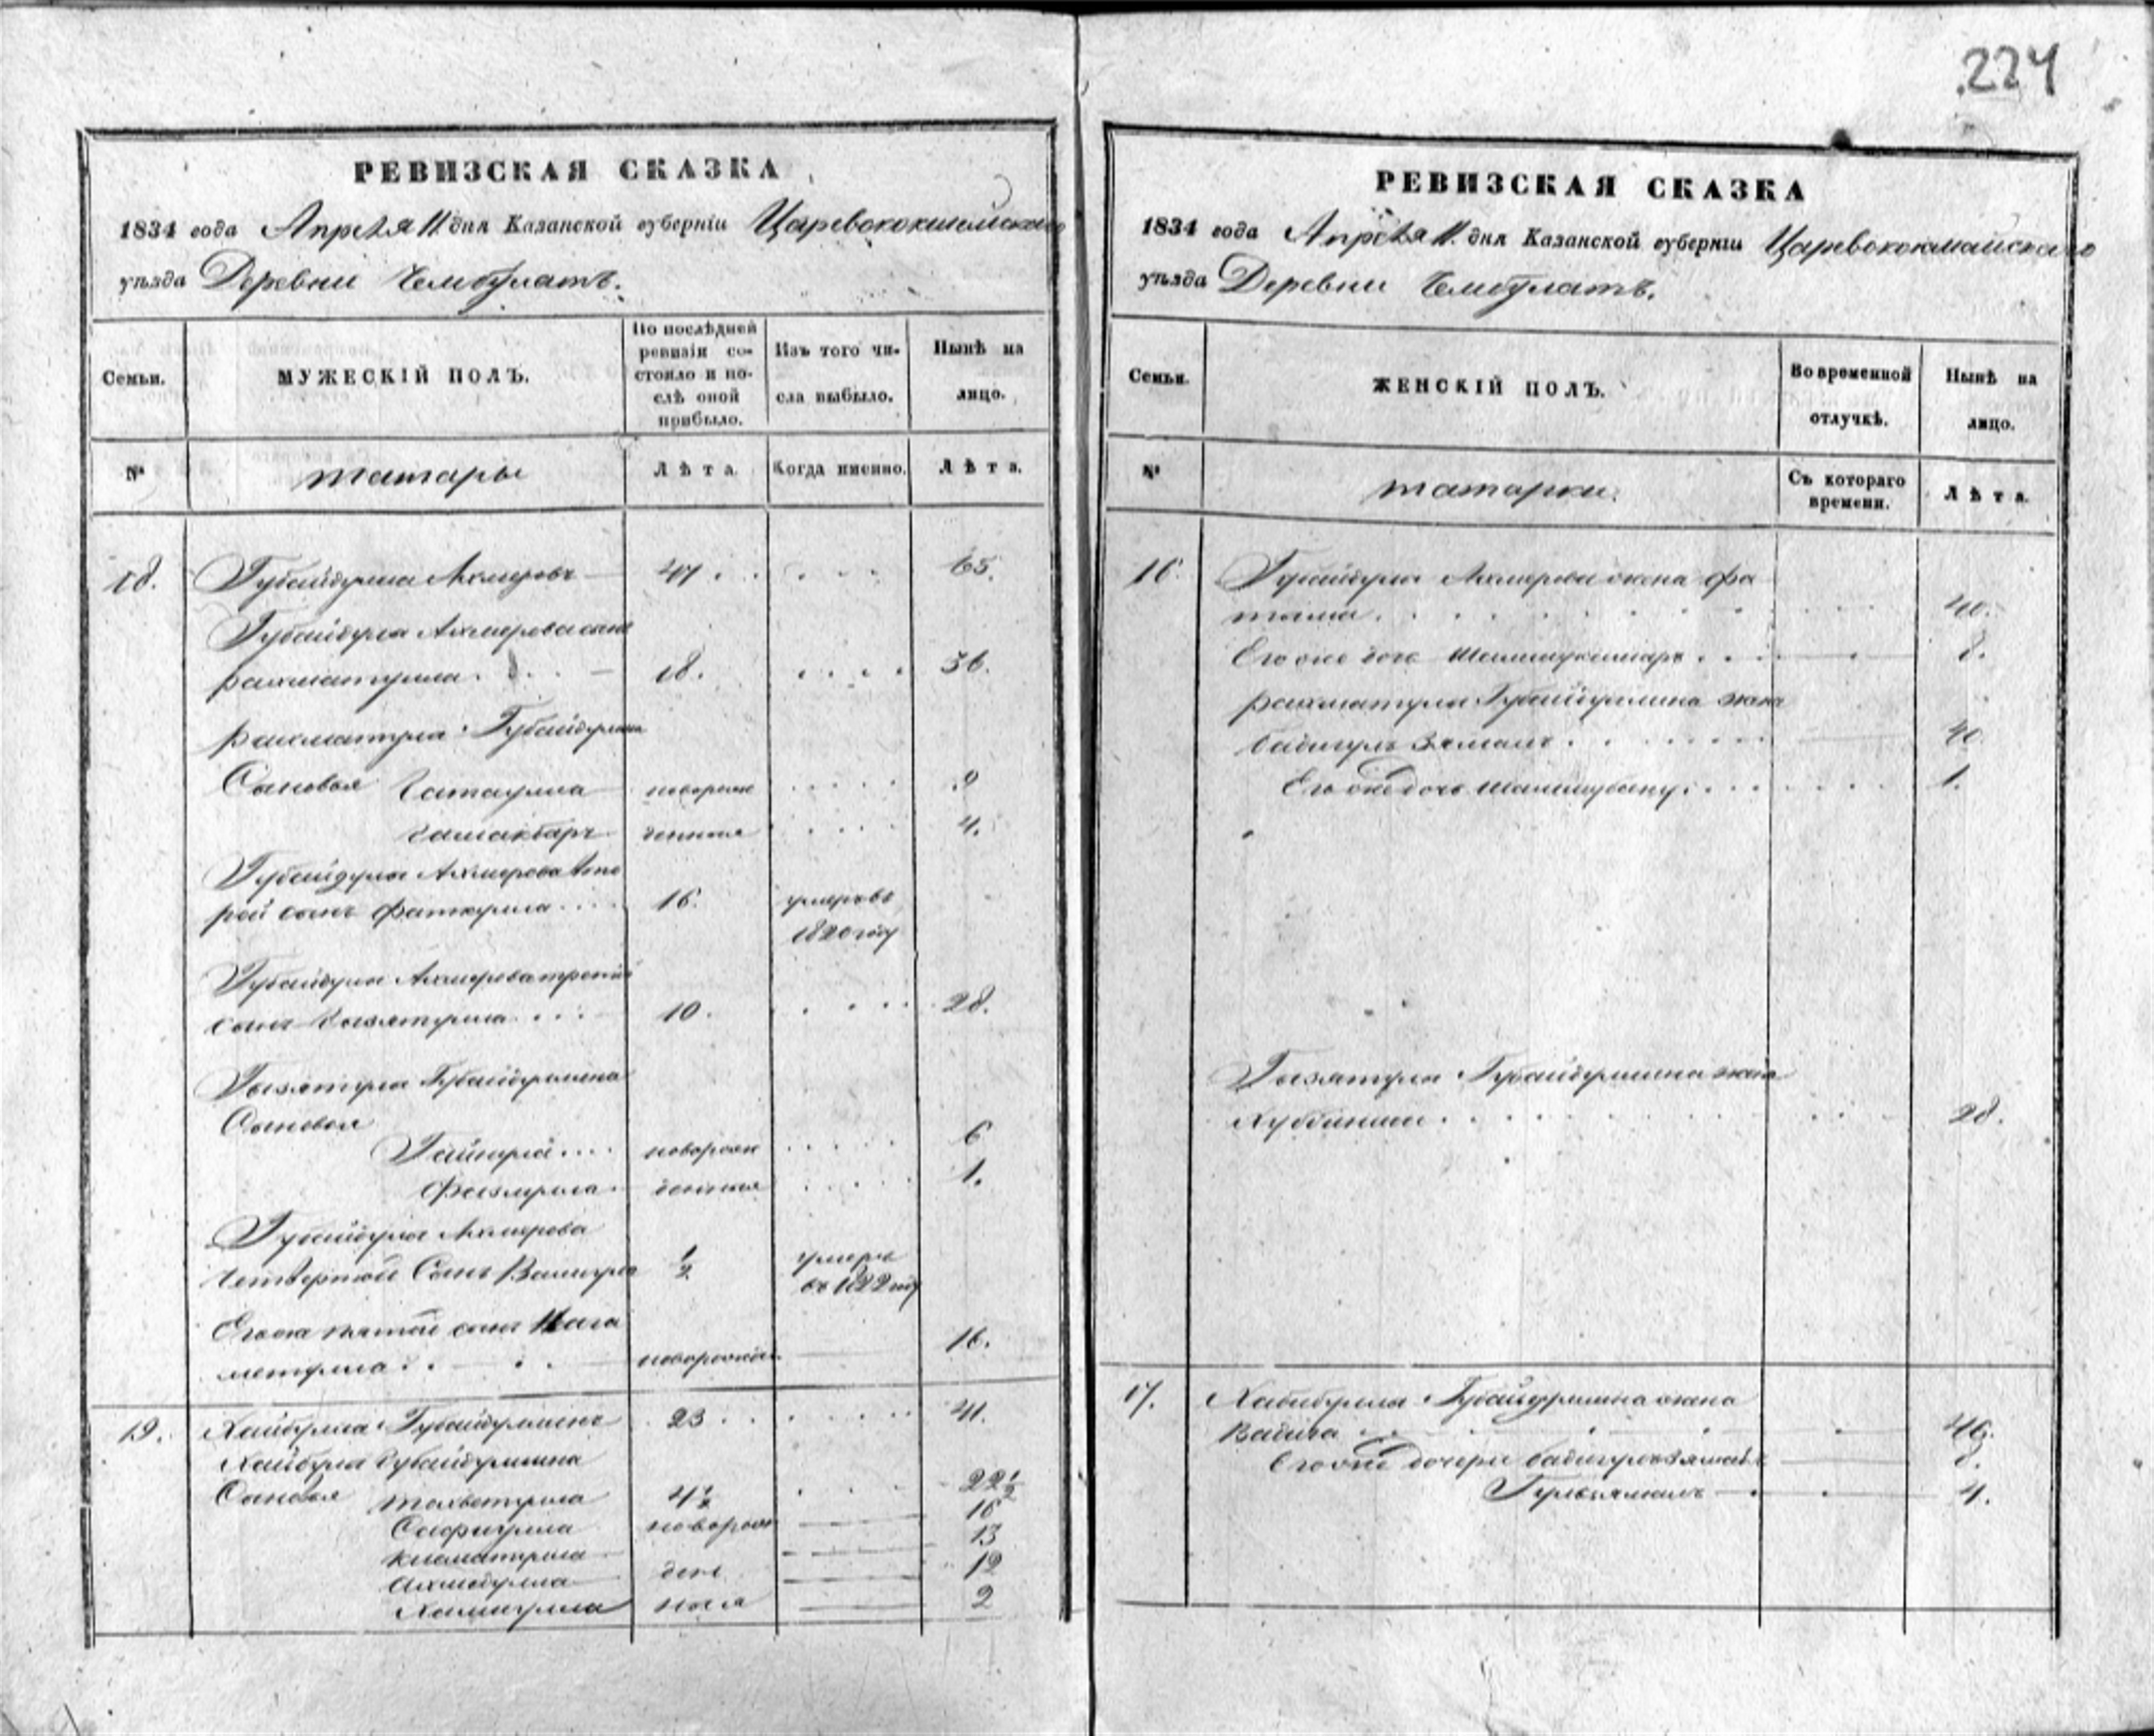 224
РЕВИЗСКАЯ СКАЗКА
1834 года Апреля 11 дня Казанской губерніи Царевококшайскаго
уѣзда Деревни Чембулатъ.
Семьи.
МУЖЕСКІЙ ПОЛЪ.
По послѣдней ревизіи со-
стояло и по-
слѣ оной
прибыло.
Изъ того чи-
сла выбыло.
Нынѣ на
лицо.
№
татары
Лѣта.
Когда именно.
Лѣта.
18. Губайдулла Ахмеровъ 47 65.
Губайдулла Ахмерова сынъ
рахматулла 18. 36.
рахматулла Губайдулина
Сыновья Гатаулла новорож 9
Галиакбаръ денные 4.
Губайдулы Ахмерова вто
рой сынъ Фаткулла 16. умеръ въ
1820 году
Губайдулы Ахмерова третій
сынъ Гизятулла 10. 28.
Гизятулы Губайдулина
Сыновья
Гайнула новорож 6
Фазлулла денные 1.
Губайдулы Ахмерова
четвертой Сынъ Валиулла 1/2 умеръ
въ 1822 году
Его же пятой сынъ
метулла новорожден 16.
19. Хайбулла Губайдуллинъ 23 41.
Хайбулла Губайдулина
Сыновья 4 1/2 22 1/2
Сафиулла новорож 16
13
Ахмадулла ден 12
Халиулла ные 2
РЕВИЗСКАЯ СКАЗКА
1834 года Апреля 11. дня Казанской губерніи Царевококшайскаго
уѣзда Деревни Чембулатъ.
Семьи.
ЖЕНСКІЙ ПОЛЪ.
Во временной
отлучкѣ.
Нынѣ на
лицо.
№
татарки.
Съ котораго
времени.
Лѣта.
16. Губайдулы Ахмерова жена Фа
тыма 40.
Его же дочь 8.
рахматулы Губайдулина жена
бадигулъ Зямалъ 40.
Его же дочь 1.
Гизятулы Губайдулина жена
28.
17. Хабибулла Губайдулина жена
46.
Его же дочери бадигулзямалъ 8.
Гульзямалъ 4.